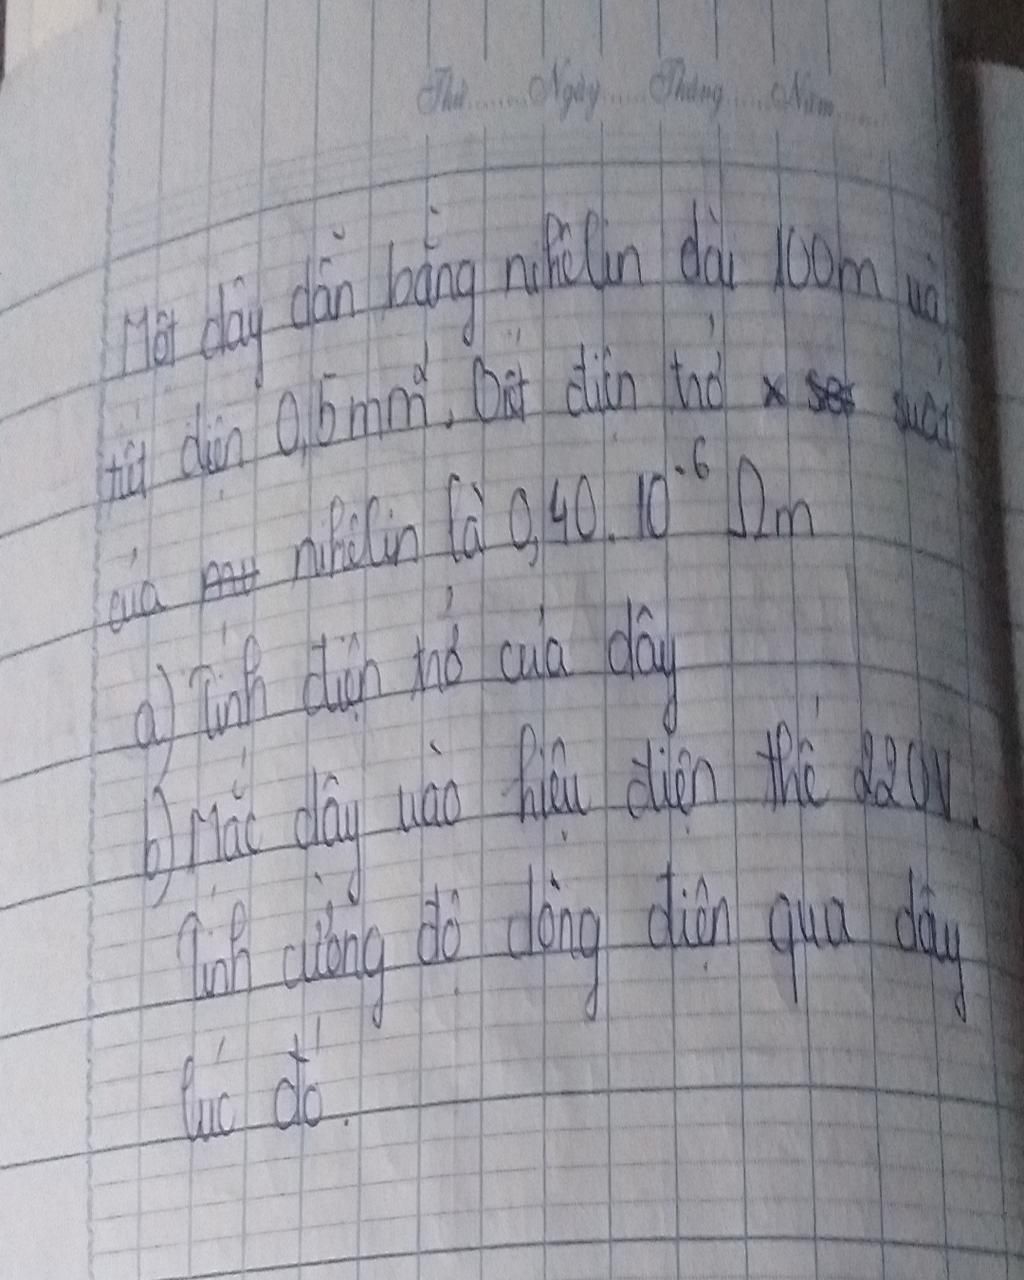 Thứ......Ngày......Tháng......Năm......
Một dây dẫn bằng nikêlin dài 100m và
tiết diện 0,5mm². Biết điện trở suất
của nikêlin là 0,40.10⁻⁶ Ωm
a) Tính điện trở của dây
b) Mắc dây vào hiệu điện thế 220V.
Tính cường độ dòng điện qua dây
lúc đó.